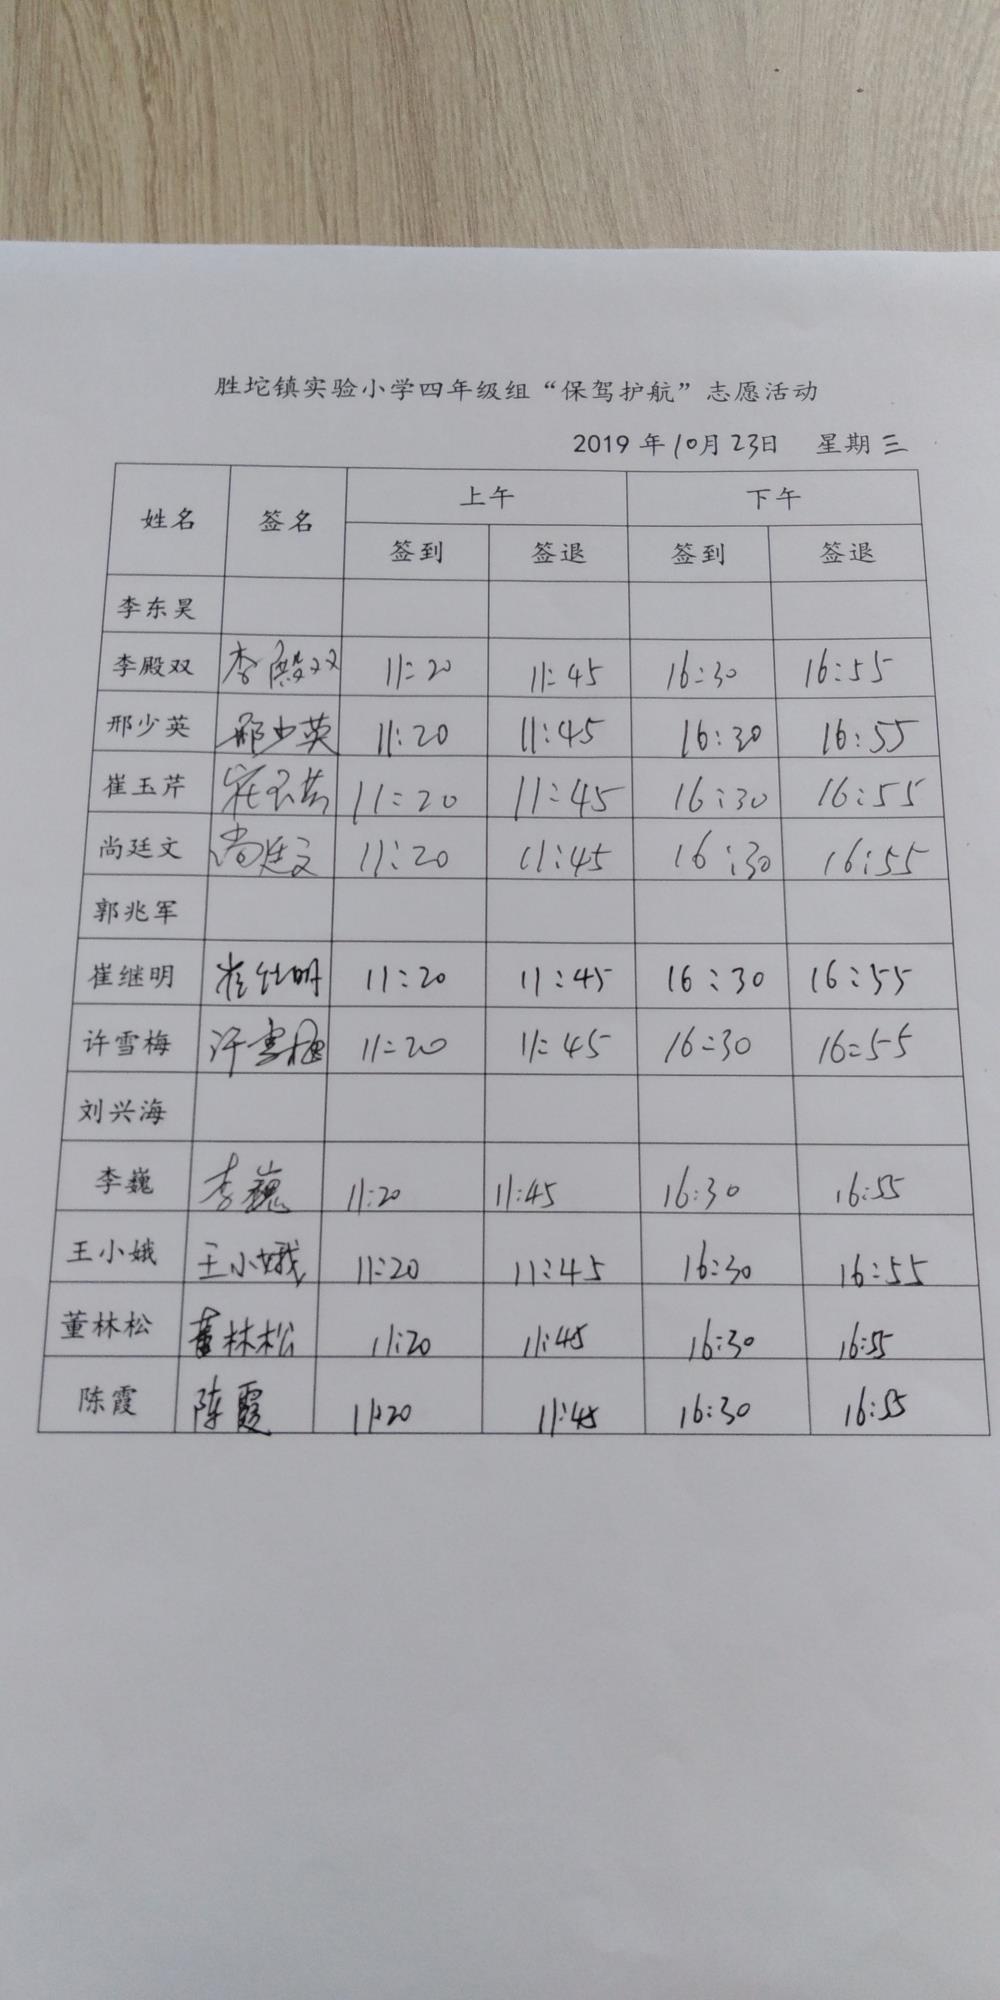 胜坨镇实验小学四年级组“保驾护航”志愿活动
2019 年 10月 23日 星期 三
姓名 签名 上午 下午
签到 签退 签到 签退
李东昊
李殿双 李殿双 11:20 11:45 16:30 16:55
邢少英 邢少英 11:20 11:45 16:30 16:55
崔玉芹 崔玉芹 11:20 11:45 16:30 16:55
尚廷文 尚廷文 11:20 11:45 16:30 16:55
郭兆军
崔继明 崔继明 11:20 11:45 16:30 16:55
许雪梅 许雪梅 11:20 11:45 16:30 16:55
刘兴海
李巍 李巍 11:20 11:45 16:30 16:55
王小娥 王小娥 11:20 11:45 16:30 16:55
董林松 董林松 11:20 11:45 16:30 16:55
陈霞 陈霞 11:20 11:45 16:30 16:55